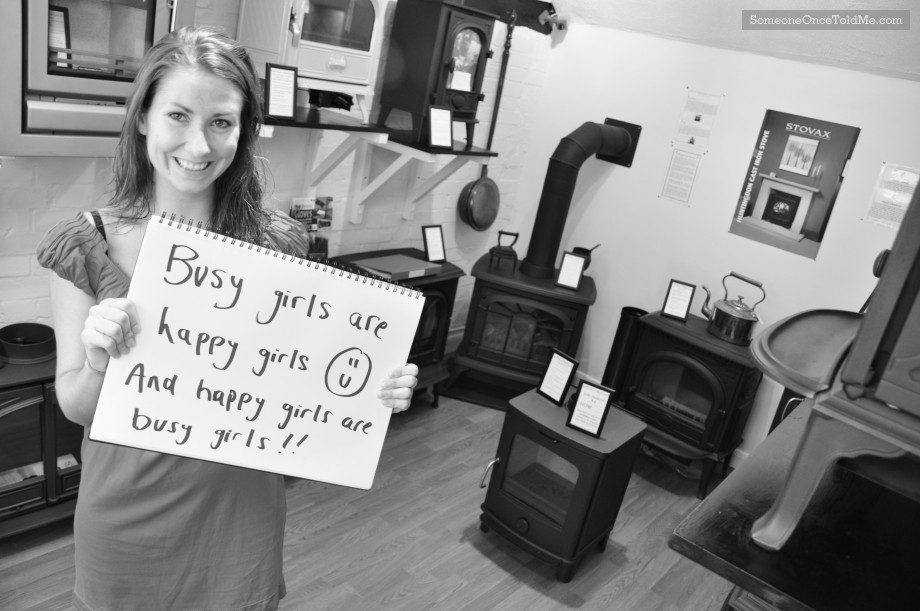 SomeoneOnceToldMe.com
STOVAX
HUNTINGDON CAST IRON STOVE
Busy girls are
happy girls
And happy girls are
busy girls!!